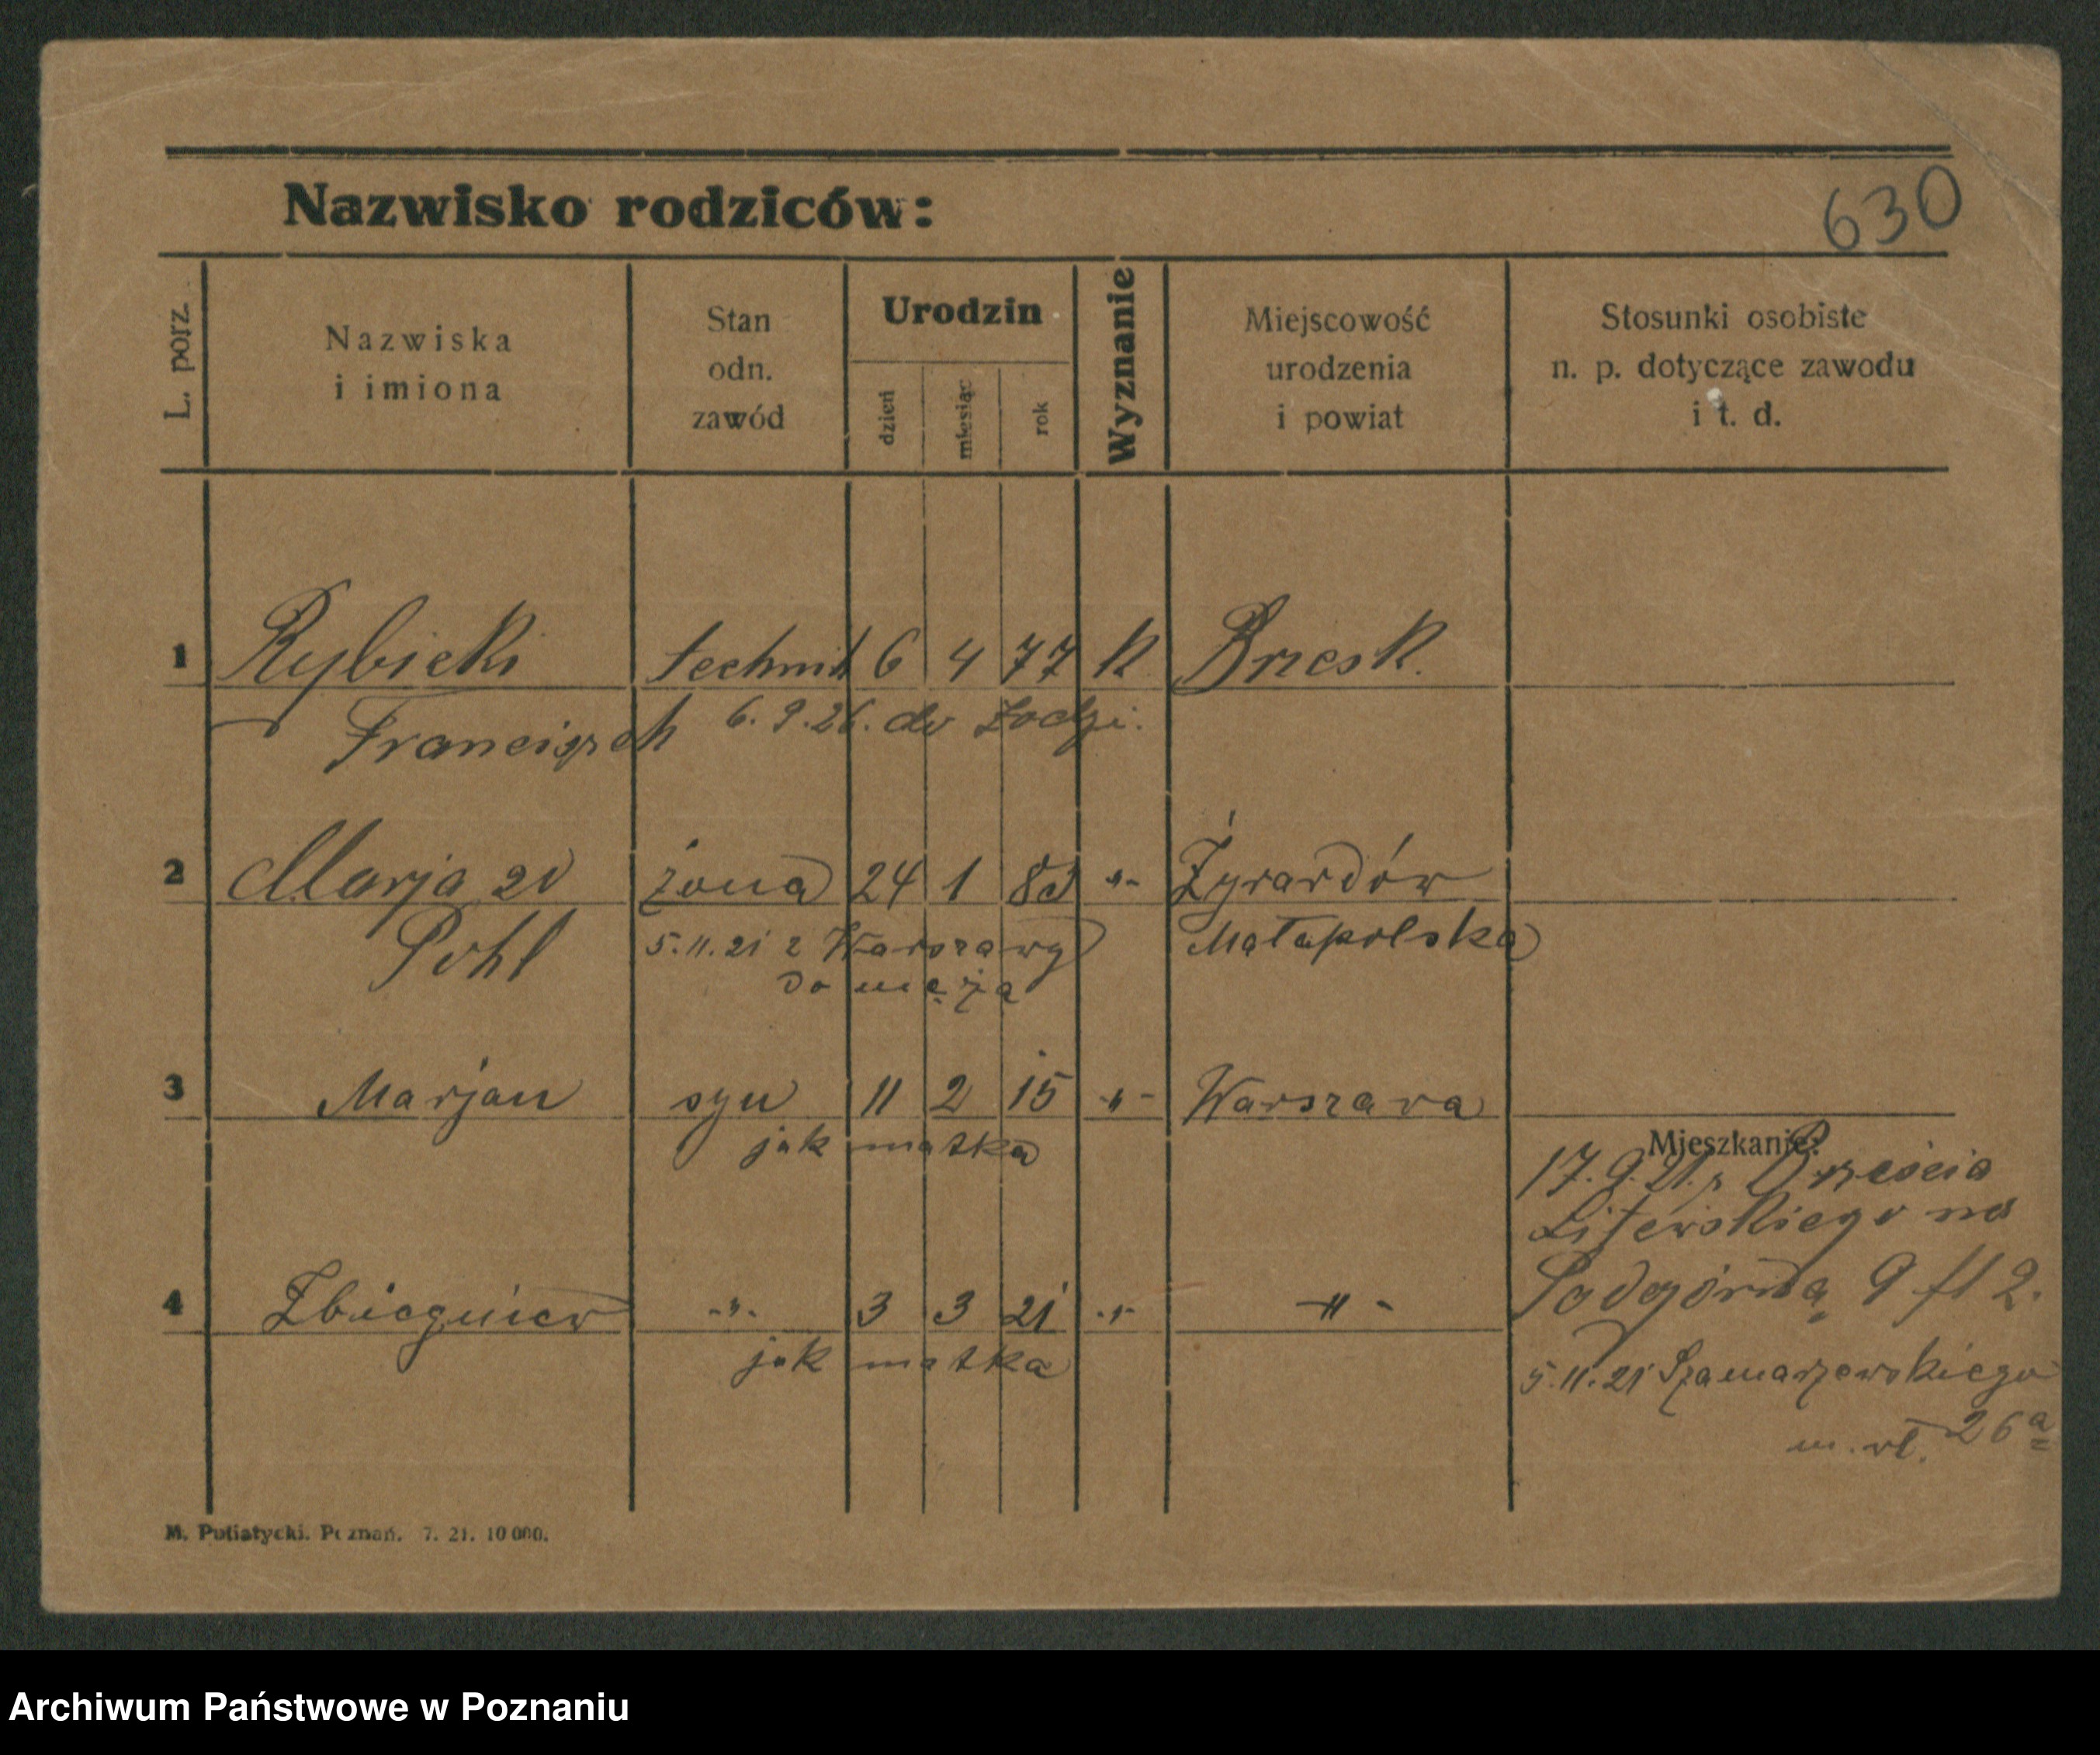 Nazwisko rodziców:
630
L. porz.
Nazwiska
i imiona
Stan
odn.
zawód
Urodzin
dzień
miesiąc
rok
Wyznanie
Miejscowość
urodzenia
i powiat
Stosunki osobiste
n. p. dotyczące zawodu
i t. d.
1 Rybicki technik 6 4 77 K Brzesk.
Franciszek 6. 9. 26. do Łodzi.
2 Marja żona 24 1 83 -"- Żyrardów
Pohl 5. 11. 21 z Warszawy Małapolska
do męża
3 Marjan syn 11 2 15 -"- Warszawa
jak matka
Mieszkanie:
17. 9. 21. z Brześcia
Litewskiego na
Podgórną 9 fl 2.
4 Zbiegniew -"- 3 3 21 -"- -"-
jak matka
5. 11. 21 Szamarzewskiego
m. wł. 26a
M. Putiatycki. Poznań. 7. 21. 10 000.
Archiwum Państwowe w Poznaniu